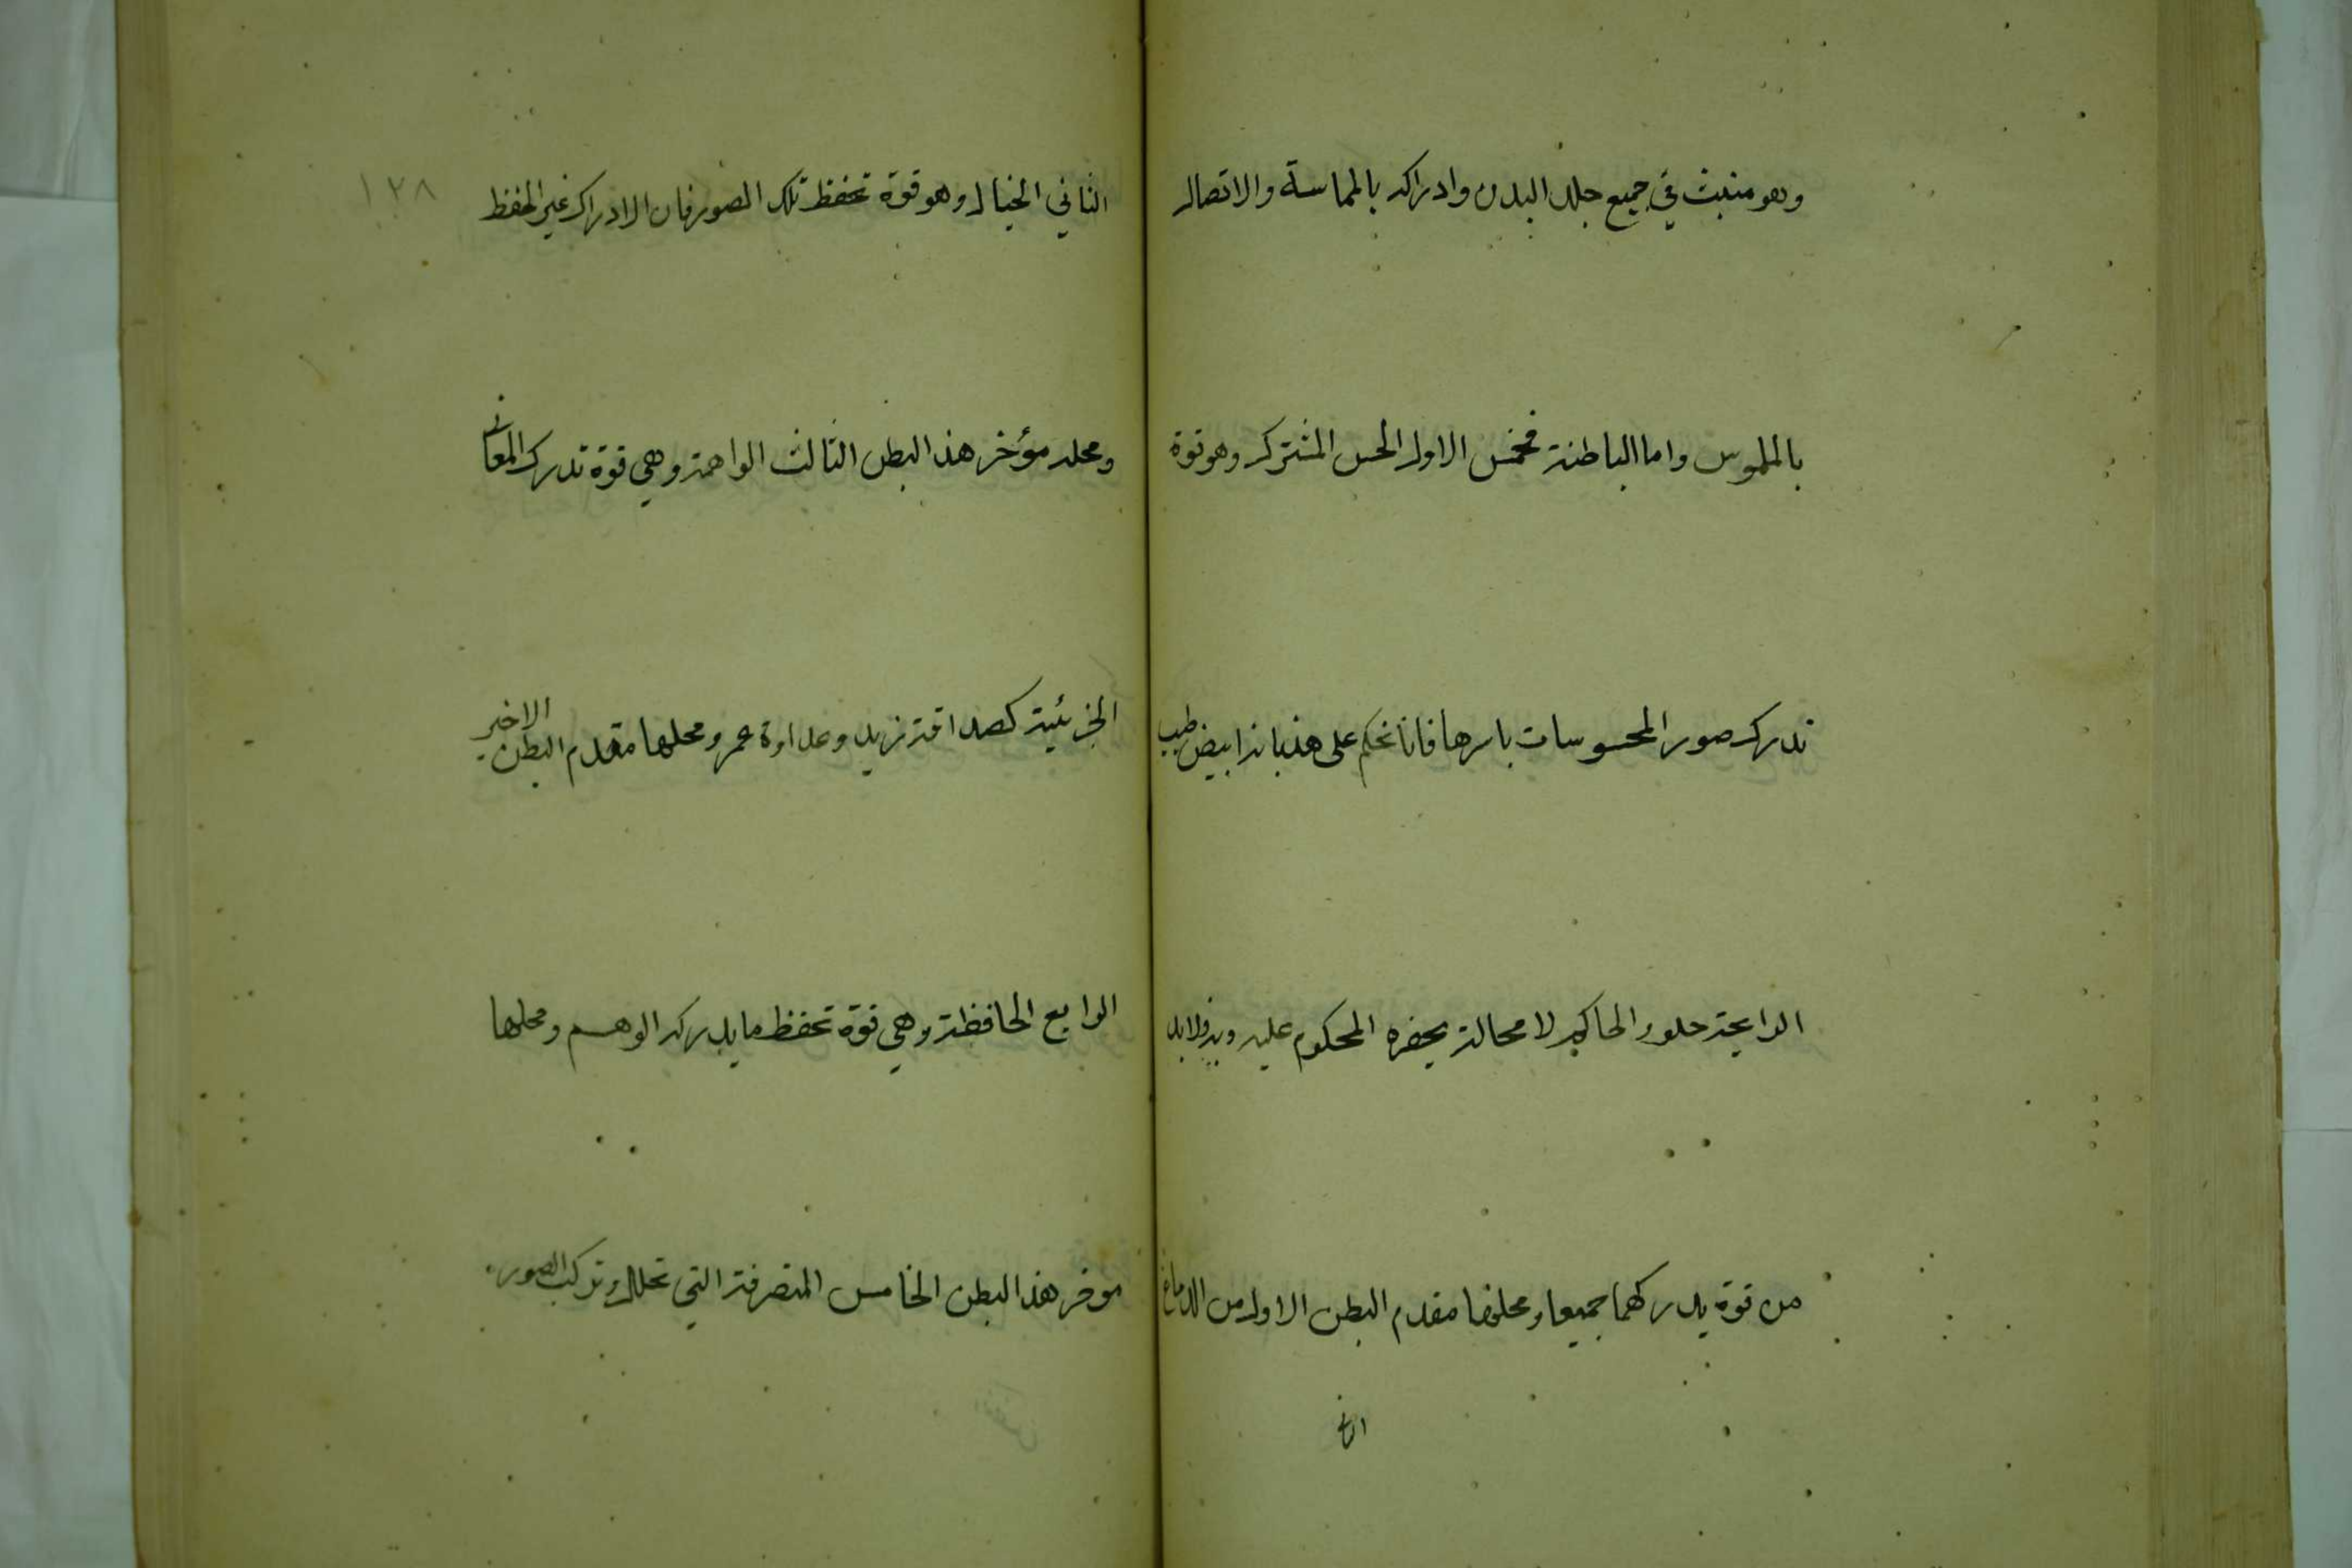 وهو منبث في جميع جلد البدن وادراكه بالمماسة والاتصال
بالملموس واما الباطنة فخمس الاول الحس المشترك وهو قوة
تدرك صور المحسوسات باسرها فانا نحكم على هذا بانه ابيض طيب
الرايحة حلو والحاكم لا محالة يحضره المحكوم عليه وبه فلابد
من قوة يدركهما جميعا ومحلها مقدم البطن الاول من الدماغ
الثاني الخيال وهو قوة تحفظ تلك الصور فان الادراك غير الحفظ
١٢٨
ومحله مؤخر هذا البطن الثالث الواهمة وهي قوة تدرك المعاني
الجزئية كصداقة زيد وعداوة عمرو ومحلها مقدم البطن الاخير
الرابع الحافظة وهي قوة تحفظ ما يدركه الوهم ومحلها
موخر هذا البطن الخامس المتصرفة التي تحلل وتركب الصور